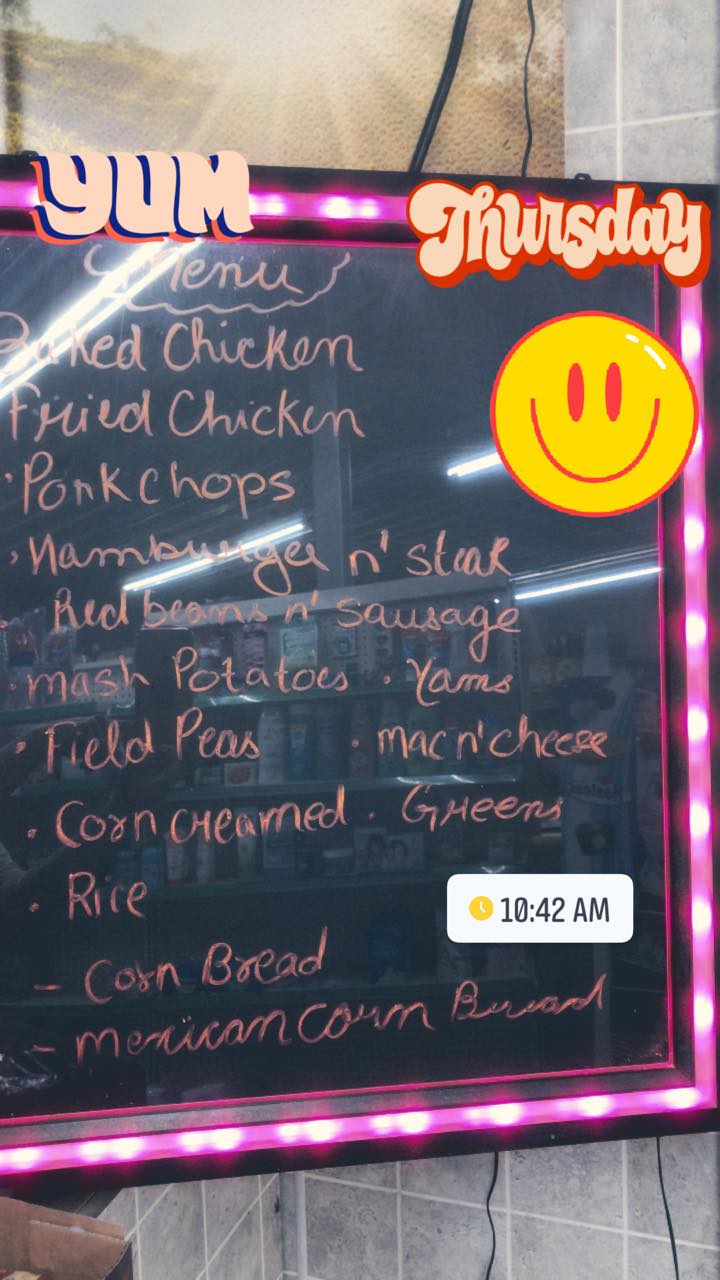 YUM
Thursday
Menu
Baked Chicken
Fried Chicken
· Pork Chops
· Hamburger n' steak
· Red beans n' sausage
· mash Potatoes · Yams
· Field Peas · mac n' cheese
· Corn creamed · Greens
· Rice
10:42 AM
- Corn Bread
- mexican Corn Bread